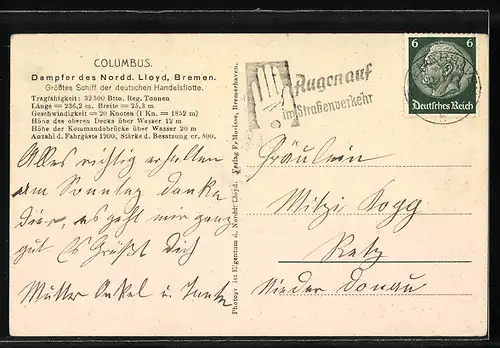 COLUMBUS.
Dampfer des Nordd. Lloyd, Bremen.
Größtes Schiff der deutschen Handelsflotte.
Tragfähigkeit: 32 500 Btto. Reg. Tonnen
Länge = 236,2 m, Breite = 25,3 m
Geschwindigkeit = 20 Knoten (1 Kn. = 1852 m)
Höhe des oberen Decks über Wasser 12 m
Höhe der Kommandobrücke über Wasser 20 m
Anzahl d. Fahrgäste 1200, Stärke d. Besatzung cr. 800.
Alles richtig erhalten
am Sonntag danke
dir, es geht mir ganz
gut Es Grüßt Dich
Mutter Onkel u. Tante
Photogr. ist Eigentum d. Nordd. Lloyd. Verlag Bremerhaven.
Augen auf
im Straßenverkehr
6 6
Deutsches Reich
Fräulein
Mitzi Kogg
Retz
Nieder Donau